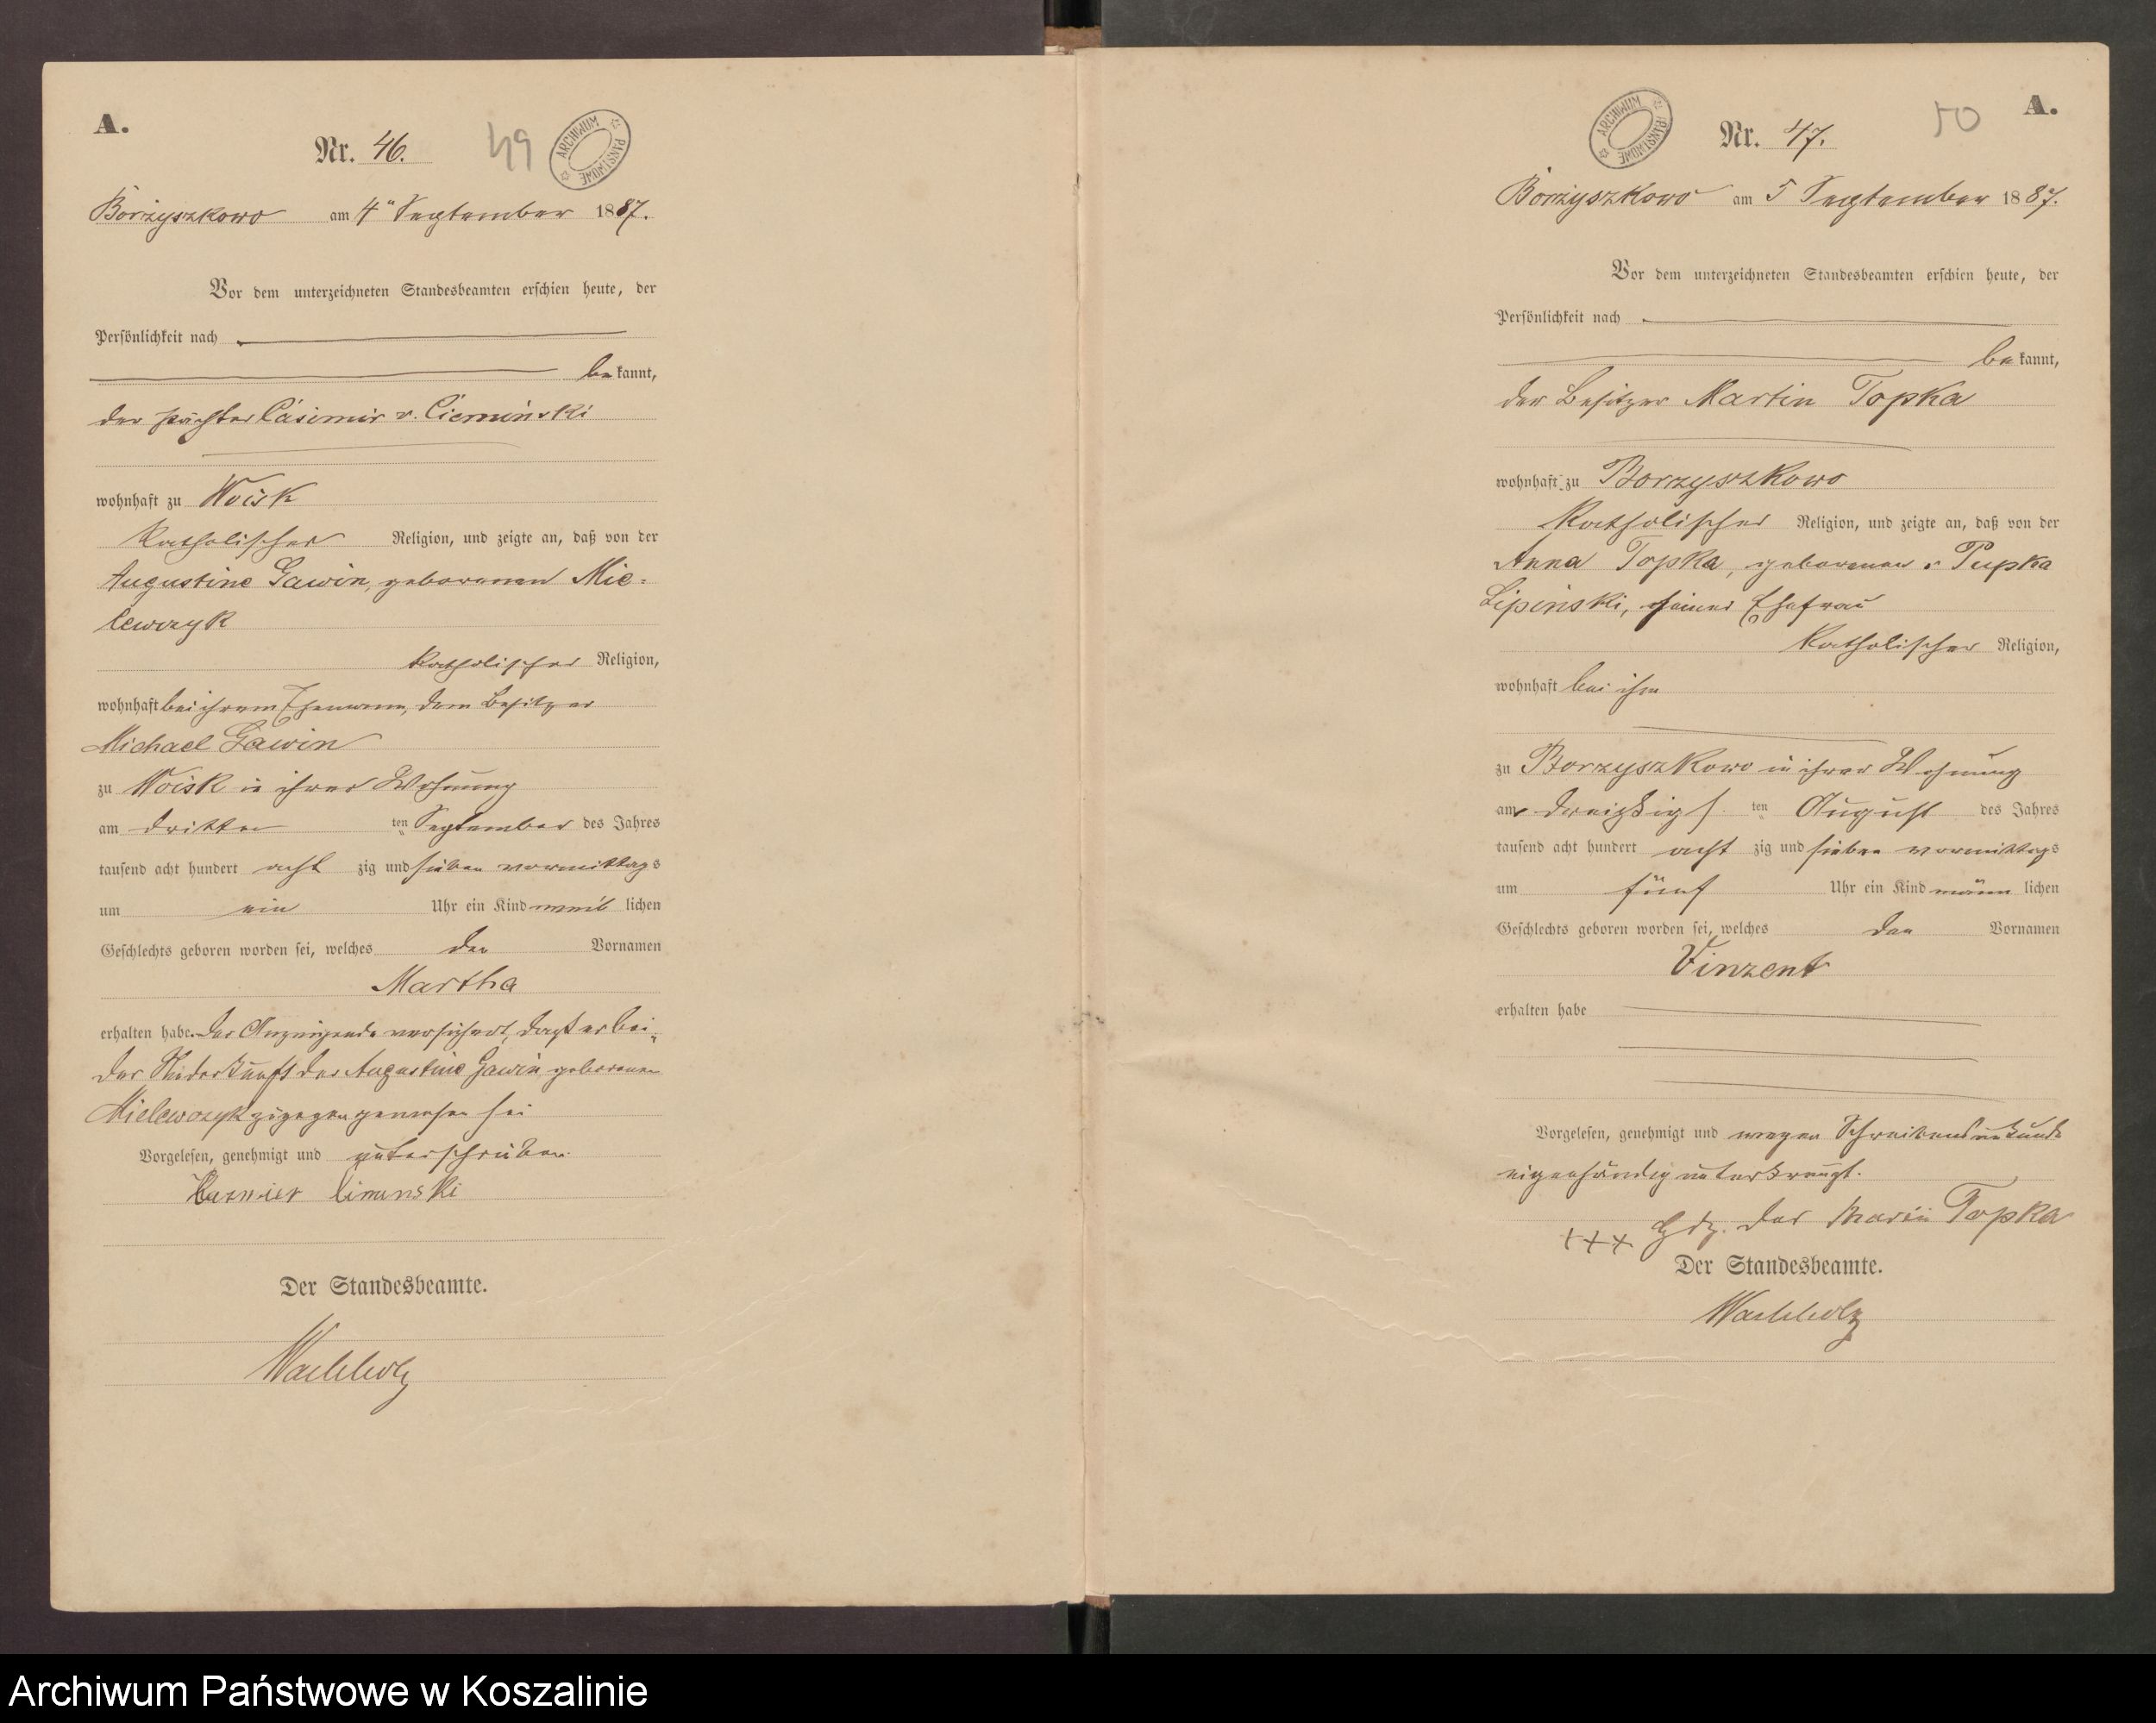 A.
Nr. 46.
49
ARCHIWUM PAŃSTWOWE
Borzyszkowo am 4ten September 1887.
Vor dem unterzeichneten Standesbeamten erschien heute, der
Persönlichkeit nach
bekannt,
der Pächter Casimir v. Ciemiński
wohnhaft zu Woisk
katholischer Religion, und zeigte an, daß von der
Augustine Gawin, geborenen Mie-
lewczyk
katholischer Religion,
wohnhaft bei ihrem Ehemann, dem Besitzer
Michael Gawin
zu Woisk in ihrer Wohnung
am dritten ten September des Jahres
tausend acht hundert acht zig und sieben vormittags
um ein Uhr ein Kind weiblichen
Geschlechts geboren worden sei, welches den Vornamen
Martha
erhalten habe. Der Anzeigende versichert, daß er bei
der Niederkunft der Augustine Gawin geborenen
Mielewczyk zugegen gewesen sei
Vorgelesen, genehmigt und unterschrieben
Der Standesbeamte.
Wachholz
A.
50
ARCHIWUM PAŃSTWOWE
Nr. 47.
Borzyszkowo am 5 September 1887.
Vor dem unterzeichneten Standesbeamten erschien heute, der
Persönlichkeit nach
bekannt,
der Besitzer Martin Topka
wohnhaft zu Borzyszkowo
katholischer Religion, und zeigte an, daß von der
Anna Topka, geborenen v Pupka
Lipinski, seiner Ehefrau
katholischer Religion,
wohnhaft bei ihm
zu Borzyszkowo in ihrer Wohnung
am dreißigsten August des Jahres
tausend acht hundert acht zig und sieben vormittags
um fünf Uhr ein Kind männlichen
Geschlechts geboren worden sei, welches den Vornamen
Vinzent
erhalten habe
Vorgelesen, genehmigt und wegen Schreibensunkunde
eigenhändig unterkreuzt.
+++ Hdz. des Martin Topka
Der Standesbeamte.
Wachholz
Archiwum Państwowe w Koszalinie